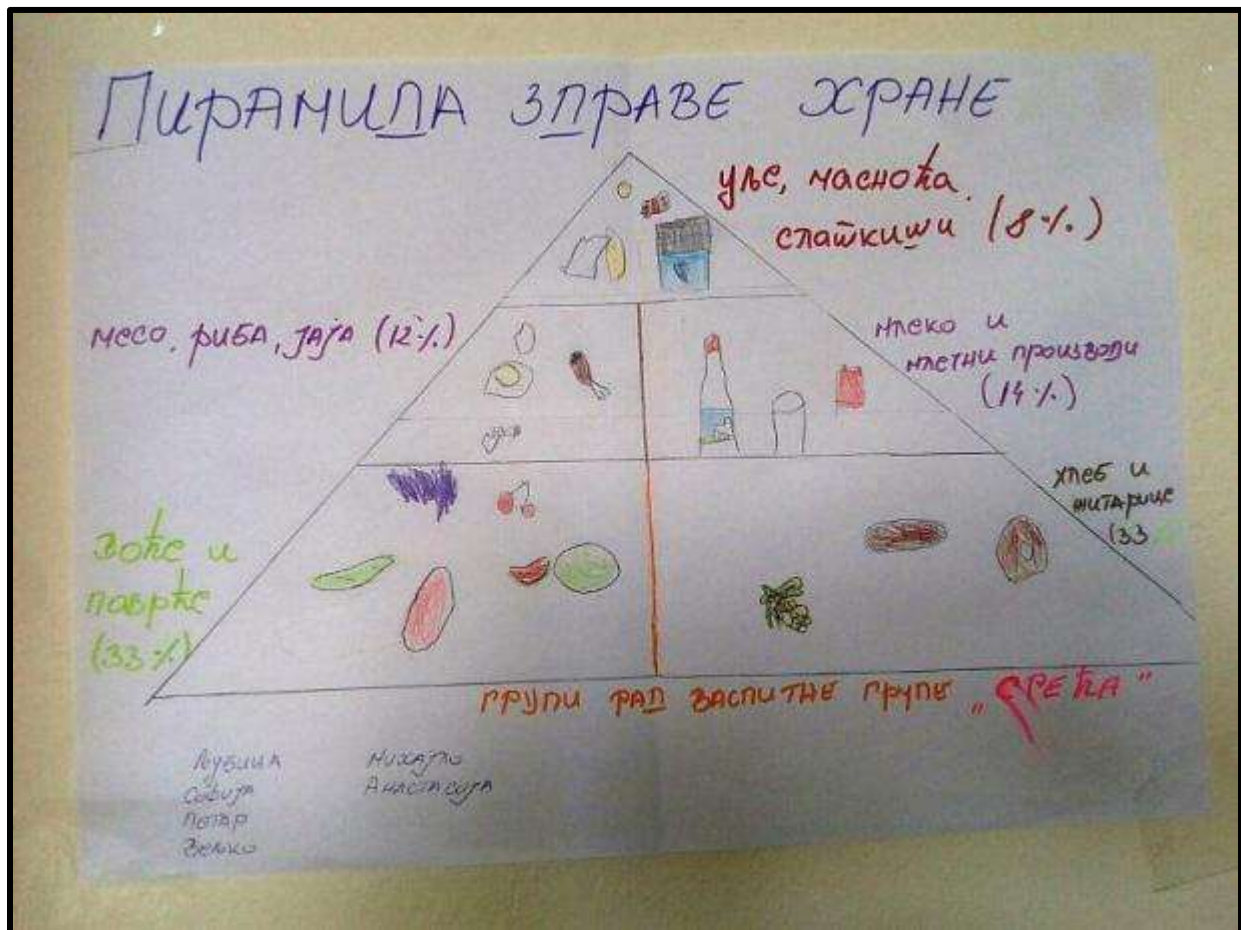 ПИРАМИДА ЗДРАВЕ ХРАНЕ
уље, масноћа,
слаткиши (8%)
месо, риба, јаја (12%)
млеко и
млетни производи
(14%)
хлеб и
житарице
(33
воће и
паврће
(33%)
групи рад васпитне групе „СРЕЋА"
Љубица
Софија
Петар
Вељко
Михајло
Анастасија